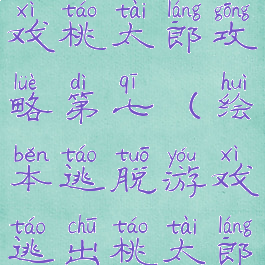 xì táo tài láng gōng
戏桃太郎攻
lüè dì qī huì
略第七（绘
běn táo tuō yóu xì
本逃脱游戏
táo chū táo tài láng
逃出桃太郎